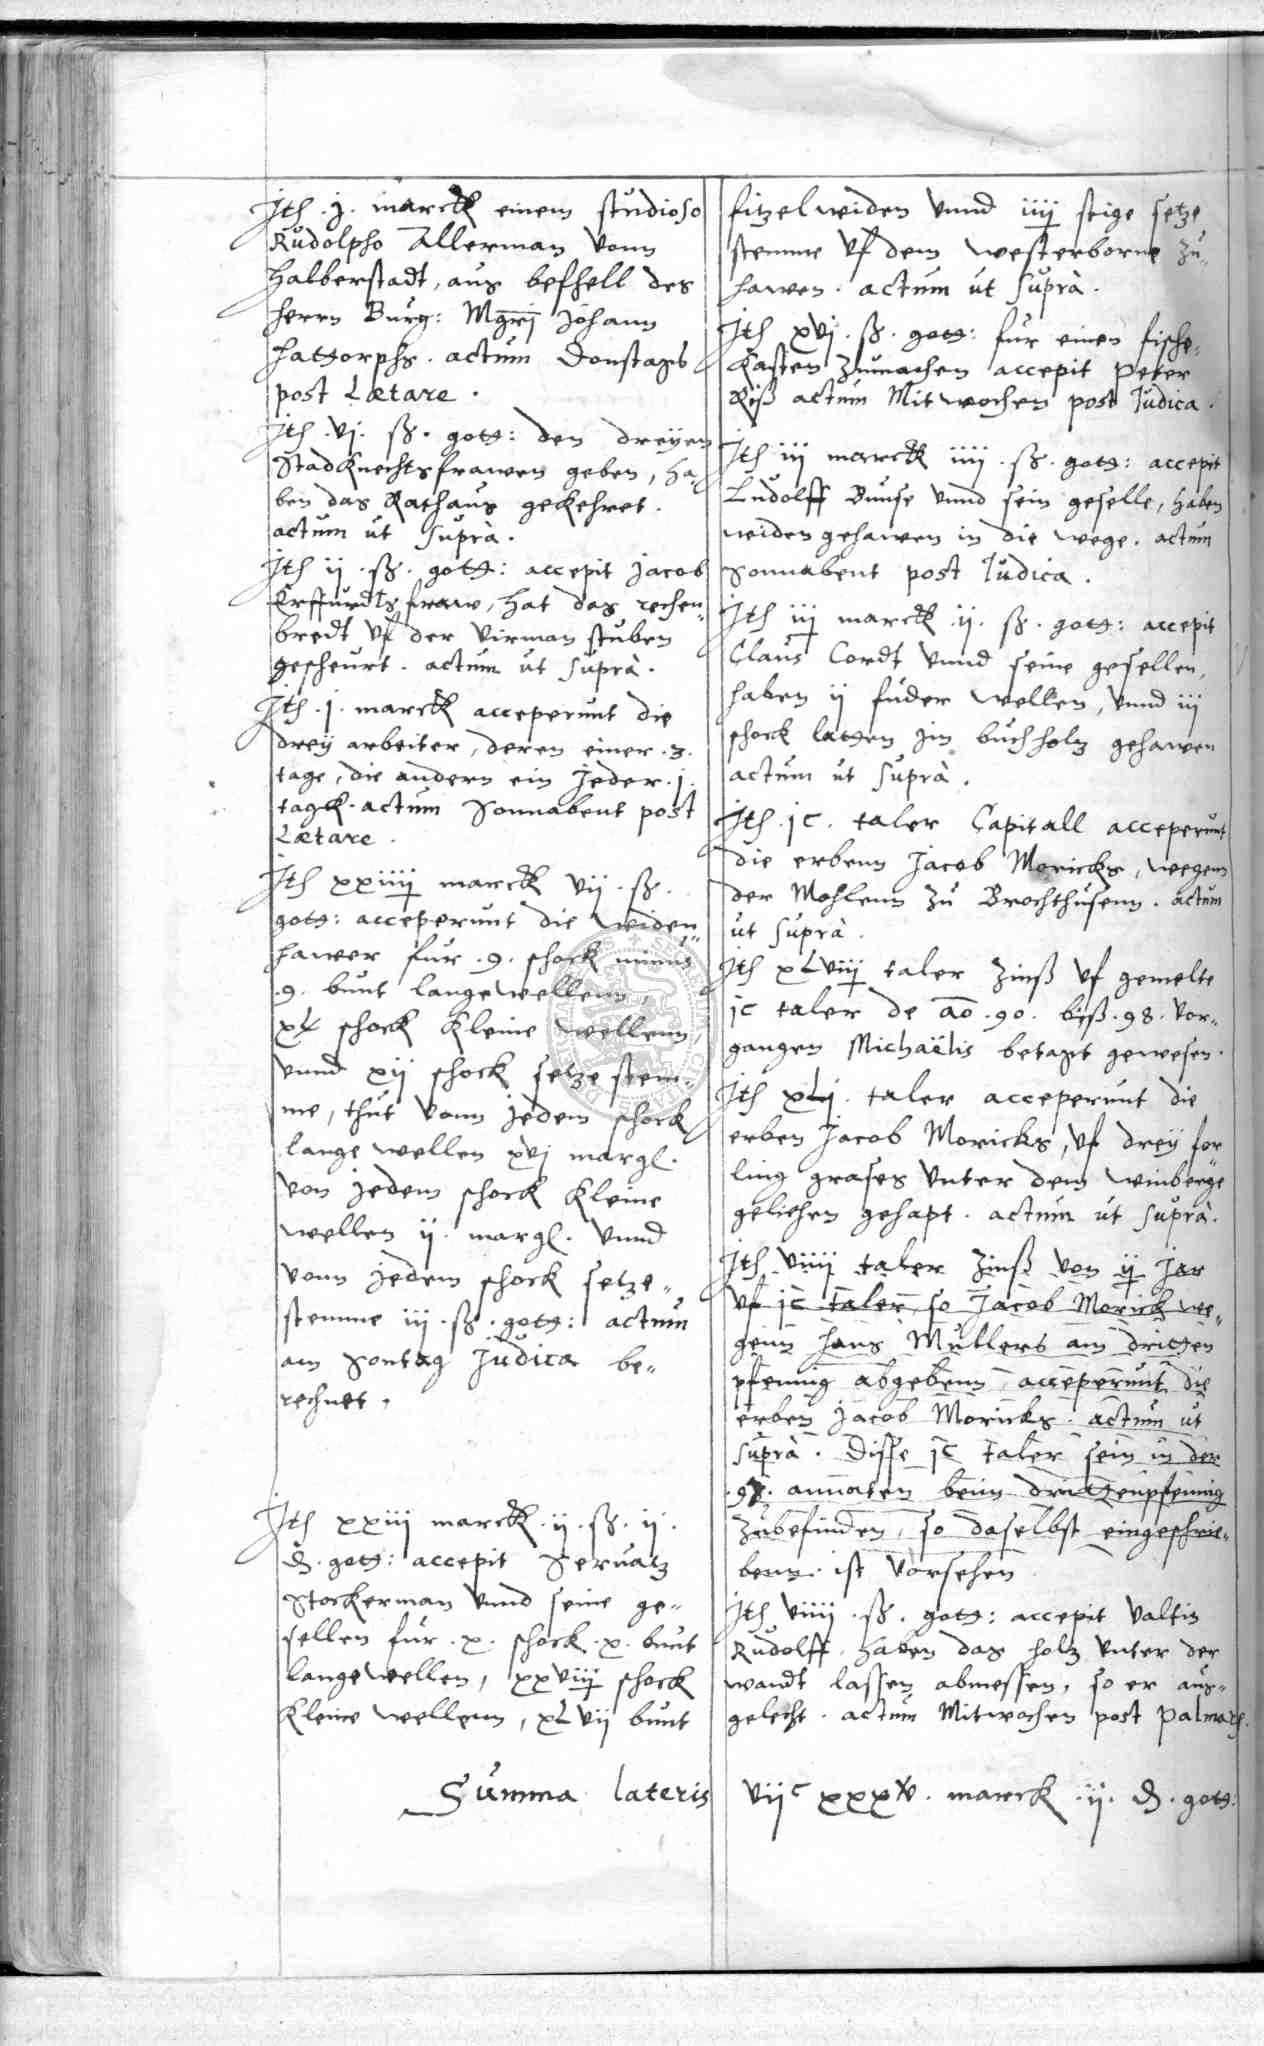 Ith .j. marck einem studioso
Rudolpho Allerman vonn
Halberstadt, aus befhell des
herrn Burg: Mgri Johann
hattorphs. actum Donstags
post Lætare.
Ith .vj. ß. gott: den dreÿen
Stadknechtsfrawen geben, ha-
ben das Rathaus gekehret.
actum ut suprà.
Ith ij .ß. gott: accepit Jacob
Erffurdts fraw, hat das rechen-
bredt uf der virman stuben
gescheurt. actum ut suprà.
Ith .j. marck acceperunt die
dreÿ arbeiter, deren einer .3.
tage, die andern ein jeder .j.
tagk. actum Sonnabent post
Lætare.
Ith xxiiij marck vij .ß.
gott: acceperunt die widen-
hawer fur .9. schock minus
.9. bunt langewellenn,
schock kleine wellenn,
unnd xij schock setze stem-
me, thut vonn jedem schock
lange wellen xvj margl.
von jedem schock kleine
wellen ij. margl. unnd
vonn jedem schock setze-
stemme iij .ß. gott: actum
am Sontag Judica be-
rechnet.
Ith xxiij marck .ij. ß. ij.
₰. gott: accepit Servatz
Stockerman unnd seine ge-
sellen fur .x. schock .x. bunt
langewellen, xxviij schock
kleine wellenn, xLvij bunt
Summa lateris
fitzelweiden unnd iiij stige setze
stemme uf dem westerborne zu-
hawen. actum ut suprà.
Ith xvj .ß. gott: fur einen fische-
kasten zumachen accepit Peter
Riß actum Mitwochen post Judica.
Ith iij marck iiij .ß. gott: accepit
Ludolff Bunse unnd sein geselle, haben
weiden gehawen in die wege. actum
Sonnabent post Judica.
Ith iij marck .ij. ß. gott: accepit
Claus Cordt unnd seine gesellen,
haben ij fuder wellen, unnd iij
schock latten im buchholtz gehawen
actum ut suprà.
Ith .jc. taler Capitall acceperunt
die erbenn Jacob Moricks, wegenn
der Mohlenn zu Brochthusenn. actum
ut suprà.
Ith xLviij taler zinß uf gemelte
jc taler de ao .90. biß .98. vor-
gangen Michaëlis betagt gewesen.
Ith xLj. taler acceperunt die
erben Jacob Moricks, uf dreÿ for
ling grases unter dem winberge
geliehen gehapt. actum ut suprà.
Ith viiij taler zinß von ij Jar
uf jc taler, so Jacob Morick we-
genn Hans Mullers am dritten
pfennig abgebenn, acceperunt die
erben Jacob Moricks. actum ut
suprà. Disse jc taler sein in der
annaten beim drittenpfennig
zubefinden, so daselbst eingeschrie-
benn ist vorsehen
Ith viiij .ß. gott: accepit Valtin
Rudolff. haben das holtz unter der
wandt lassen abmessen, so er aus-
gelecht. actum Mitwochen post Palmar.
vijc xxxv. marck .ij. ₰. gott: